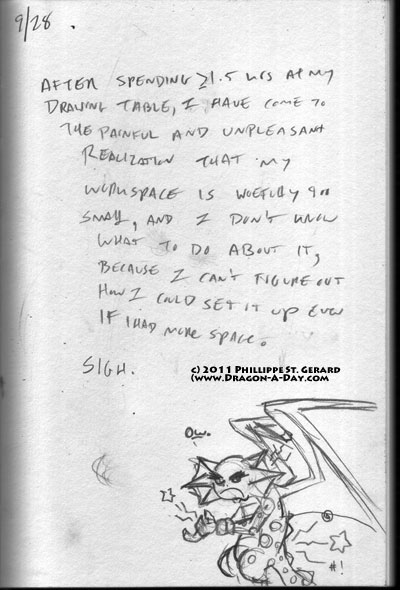 9/28.
AFTER SPENDING ≥1.5 hrs AT MY
DRAWING TABLE, I HAVE COME TO
THE PAINFUL AND UNPLEASANT
REALIZATION THAT MY
WORKSPACE IS WOEFULLY
SMALL, AND I DON'T KNOW
WHAT TO DO ABOUT IT,
BECAUSE I CAN'T FIGURE OUT
HOW I COULD SET IT UP EVEN
IF I HAD MORE SPACE.
SIGH.
c) 2011 PHILLIPPE ST. GERARD
(WWW.DRAGON-A-DAY.COM
OW.
#!